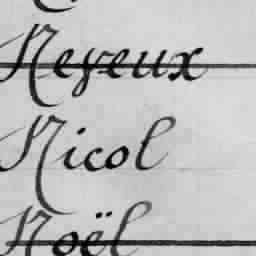 Neveux
Nicol
Noël